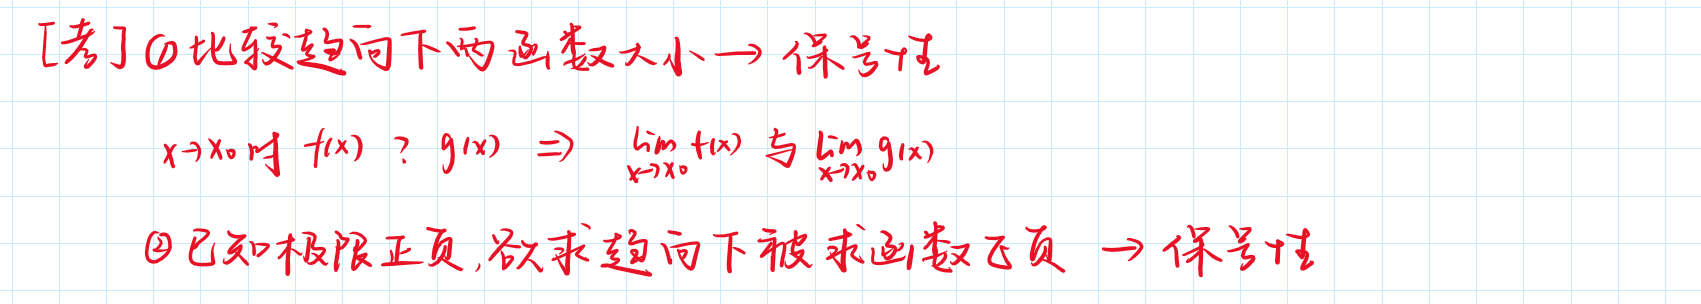 [考] ① 比较趋向下两函数大小 → 保号性
x→x₀时 f(x) ? g(x) ⇒ lim x→x₀ f(x) 与 lim x→x₀ g(x)
② 已知极限正负,欲求趋向下被求函数正负 → 保号性